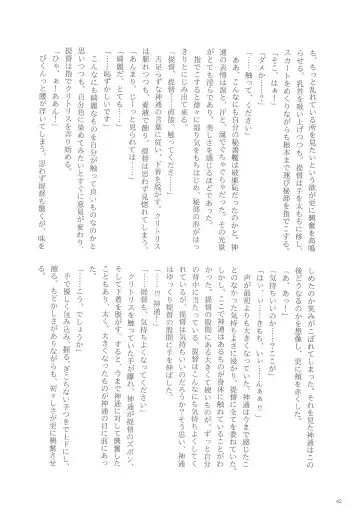 も、もっと乱れている所を見たいという欲が更に興奮を高鳴
らせる。乳首を吸い上げつつも、提督は手を太ももに移し、
スカートをめくりながらも根本まで運び秘部を指でこする。
「そこ、はぁっ…」
「ダメか……?」
「……触って、ください」
　ああ、こんなにも自分の秘書艦は破廉恥だったのかと、神
通の表情は涙と、汗と、涎でぐちゃぐちゃだった。その光景
がとても淫らであり、美しさを感じるほどであった。
　指でこすると徐々に湿り気をもちはじめ、秘部の形がはっ
きりとにじみ出て来る。
「提督……直接、触って、ください……」
舌足らずな神通の言葉に従い、下着を脱がす。クリトリス
は腫れつつも、愛液で照り、提督は思わず見惚れてしまう。
「あんまり、じーっと見られては……」
「綺麗だ、とても……」
「……恥ずかしいです」
　こんなにも綺麗なものを自分が触って良いものなのかと
思いつつも、自分色に染めてみたいとすぐに意見が変わり、
提督は指でクリトリスを弄り始める。
「ひゃ、あーああんー」
びくんっと腰が浮いてしまう。思わず提督も驚くが、味を
しめたのか笑みがこぼれてしまった。それを見た神通はこの
後どうなるのかを想像し、更に頬を赤くした。
「あ、あっ…」
「気持ちいいのか……?ここが」
「はぁっ…きもち、いぃ……んぁぁ!!」
　声が最初よりも大きくなっていった。神通は今まで感じたこ
とのなかった気持ちよさに緩かり、提督に全てを委ねていた。
しかし、ここで神通はあるものが身体に触れていることが
分かった。提督の股間にある大きくて硬いものが、ずっと自分
の背中に当たっている。提督はこんなにも気持ちよくしてく
れているが、提督は気持ちいいのだろうか?そう思い、神通
はゆっくり提督の股間に手を伸ばした。
「……!?神通!?」
「……提督も、気持ちよくなってください……」
クリトリスを触っていた手が離れ、神通が提督のズボン、
そして下着を脱がす。すると、今まで神通に対して興奮した
こともあり、太く、大きくなったものが神通の目の前にあっ
た。
「……こう、でしょうか」
　手で優しく包み込み、握る。ぎこちない手つきで上下にし、
擦る。もどかしさがありながらも、初々しさが更に興奮させ
42